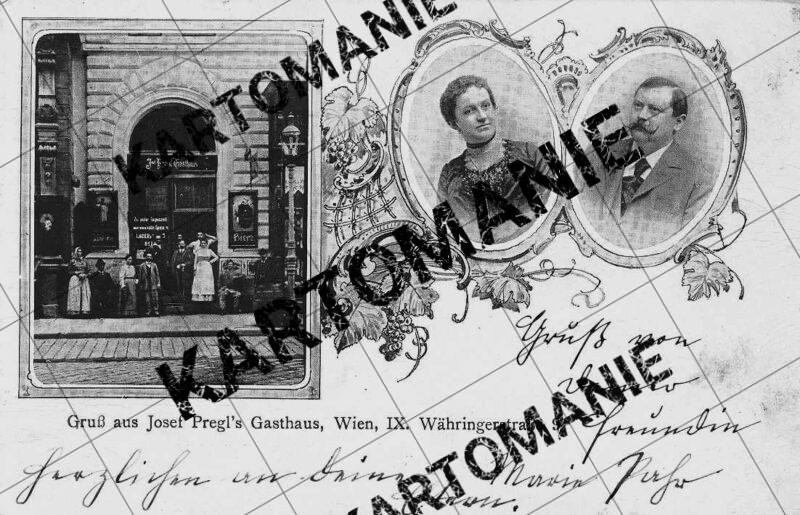 Jos. Pregl's Gasthaus
KARTOMANIE
KARTOMANIE
KARTOMANIE
KARTOMANIE
Gruß von
Freundin
Gruß aus Josef Pregl's Gasthaus, Wien, IX. Währingerstraße
Herzlichen an deine
Marie Pahr